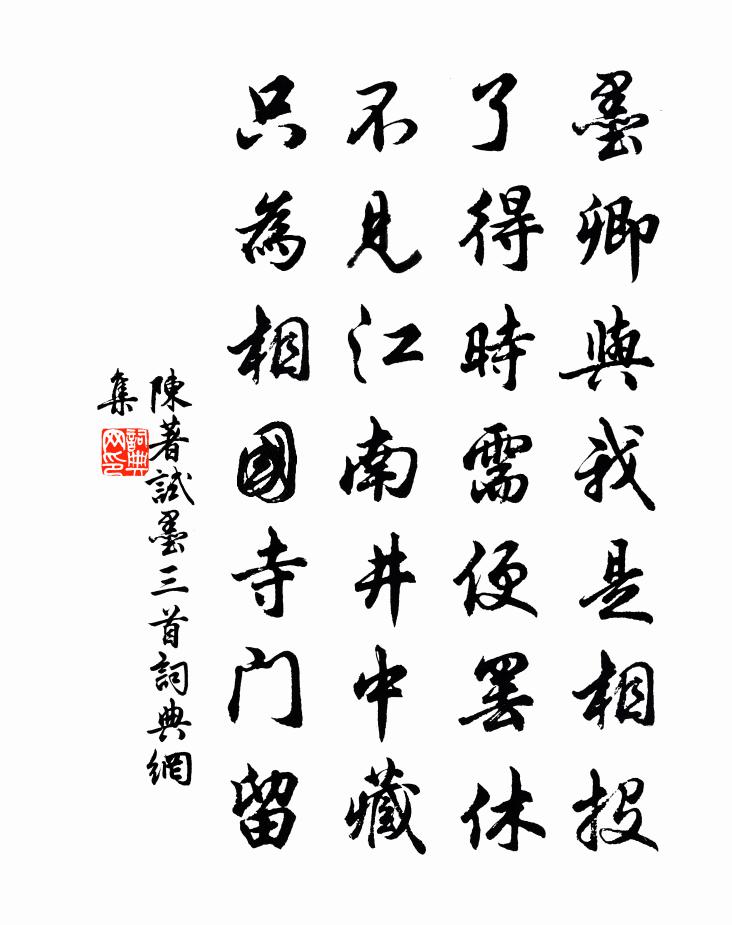 墨卿與我是相投
了得時需便罷休
不見江南井中藏
只為相國寺門留
陳著試墨三首詞典網
集
詞典網印